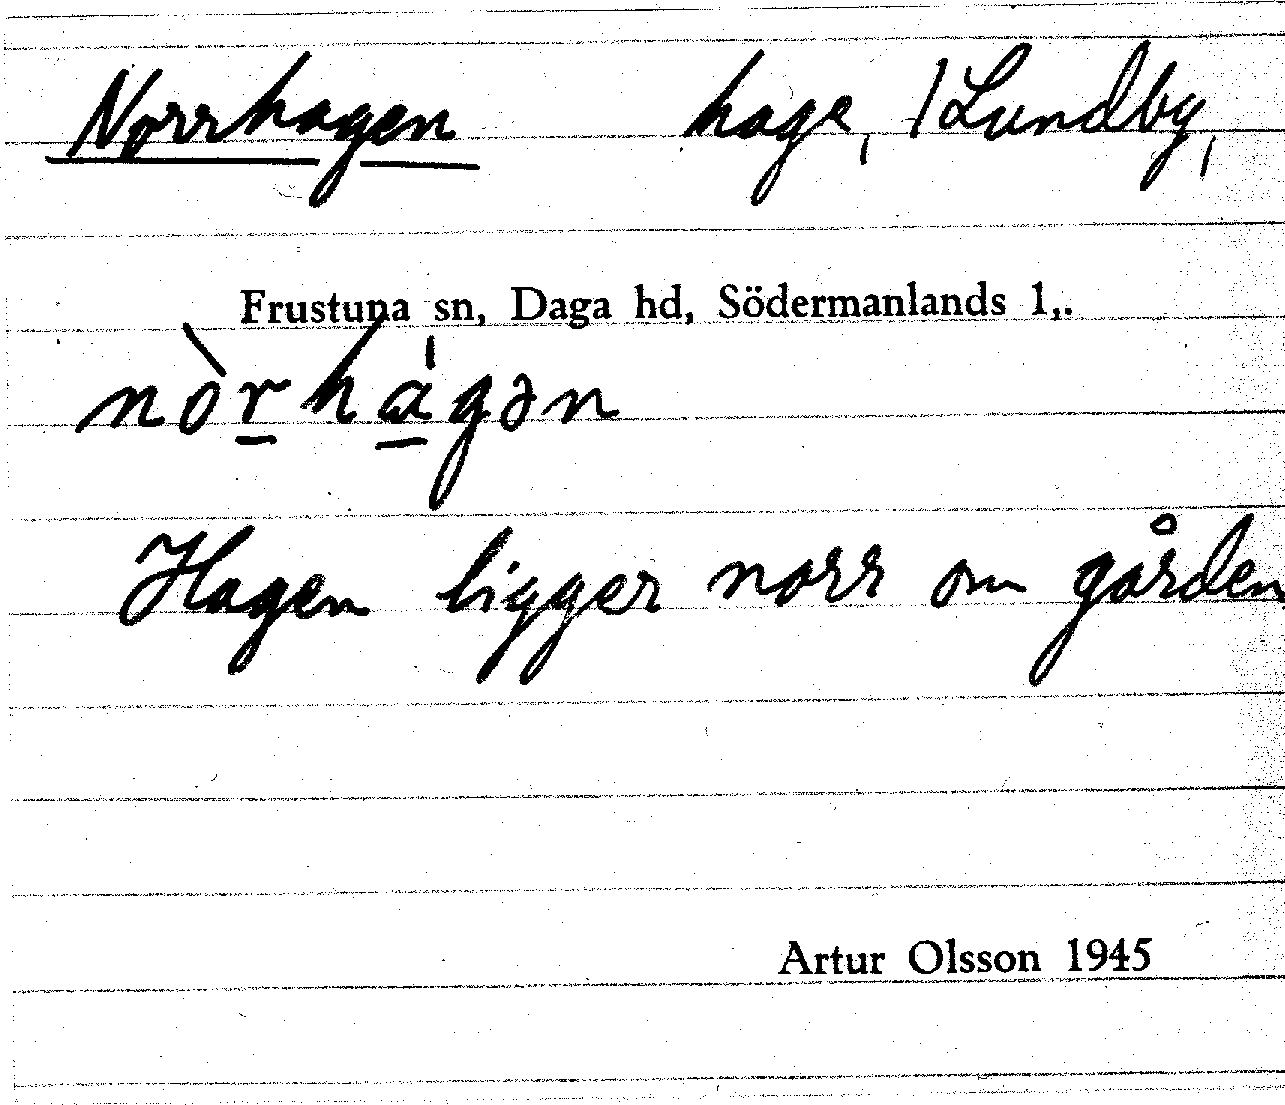 Norrhagen hage, /Lundby,
Frustuna sn, Daga hd, Södermanlands l,.
nòr̲há̲gən
Hagen ligger norr om gården
Artur Olsson 1945